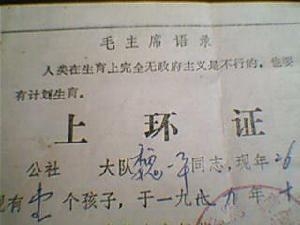 毛主席语录
人类在生育上完全无政府主义是不行的，也要
有计划生育。
上环证
公社 大队 同志，现年26
现有 个孩子，于一九七 年十